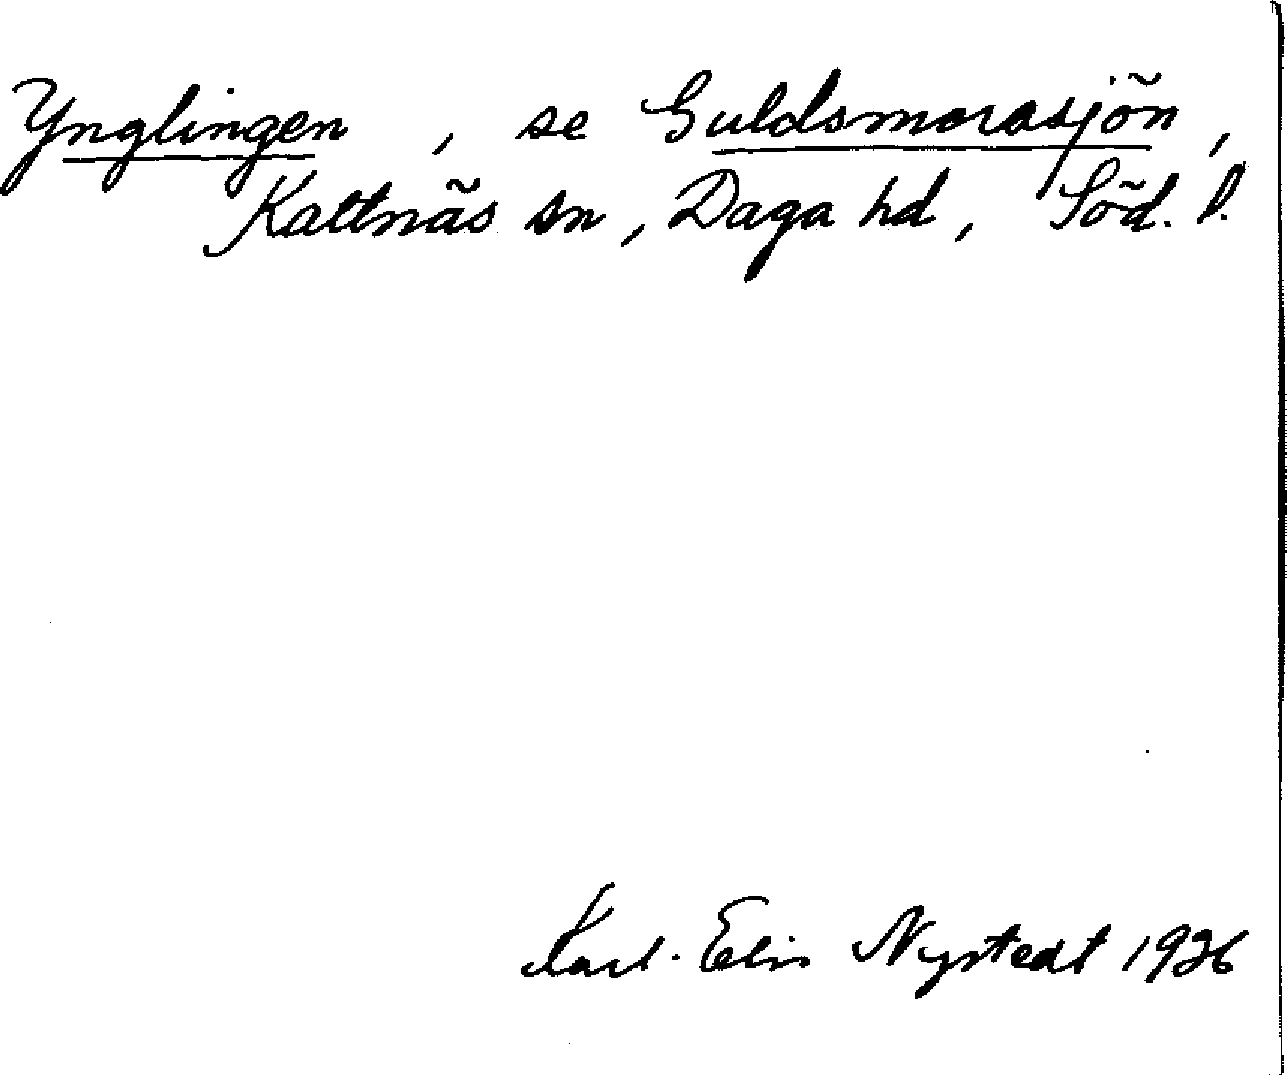 Ynglingen, se Guldsmorasjön,
Kattnäs sn, Daga hd, Söd. l.
Karl-Elis Nystedt 1936